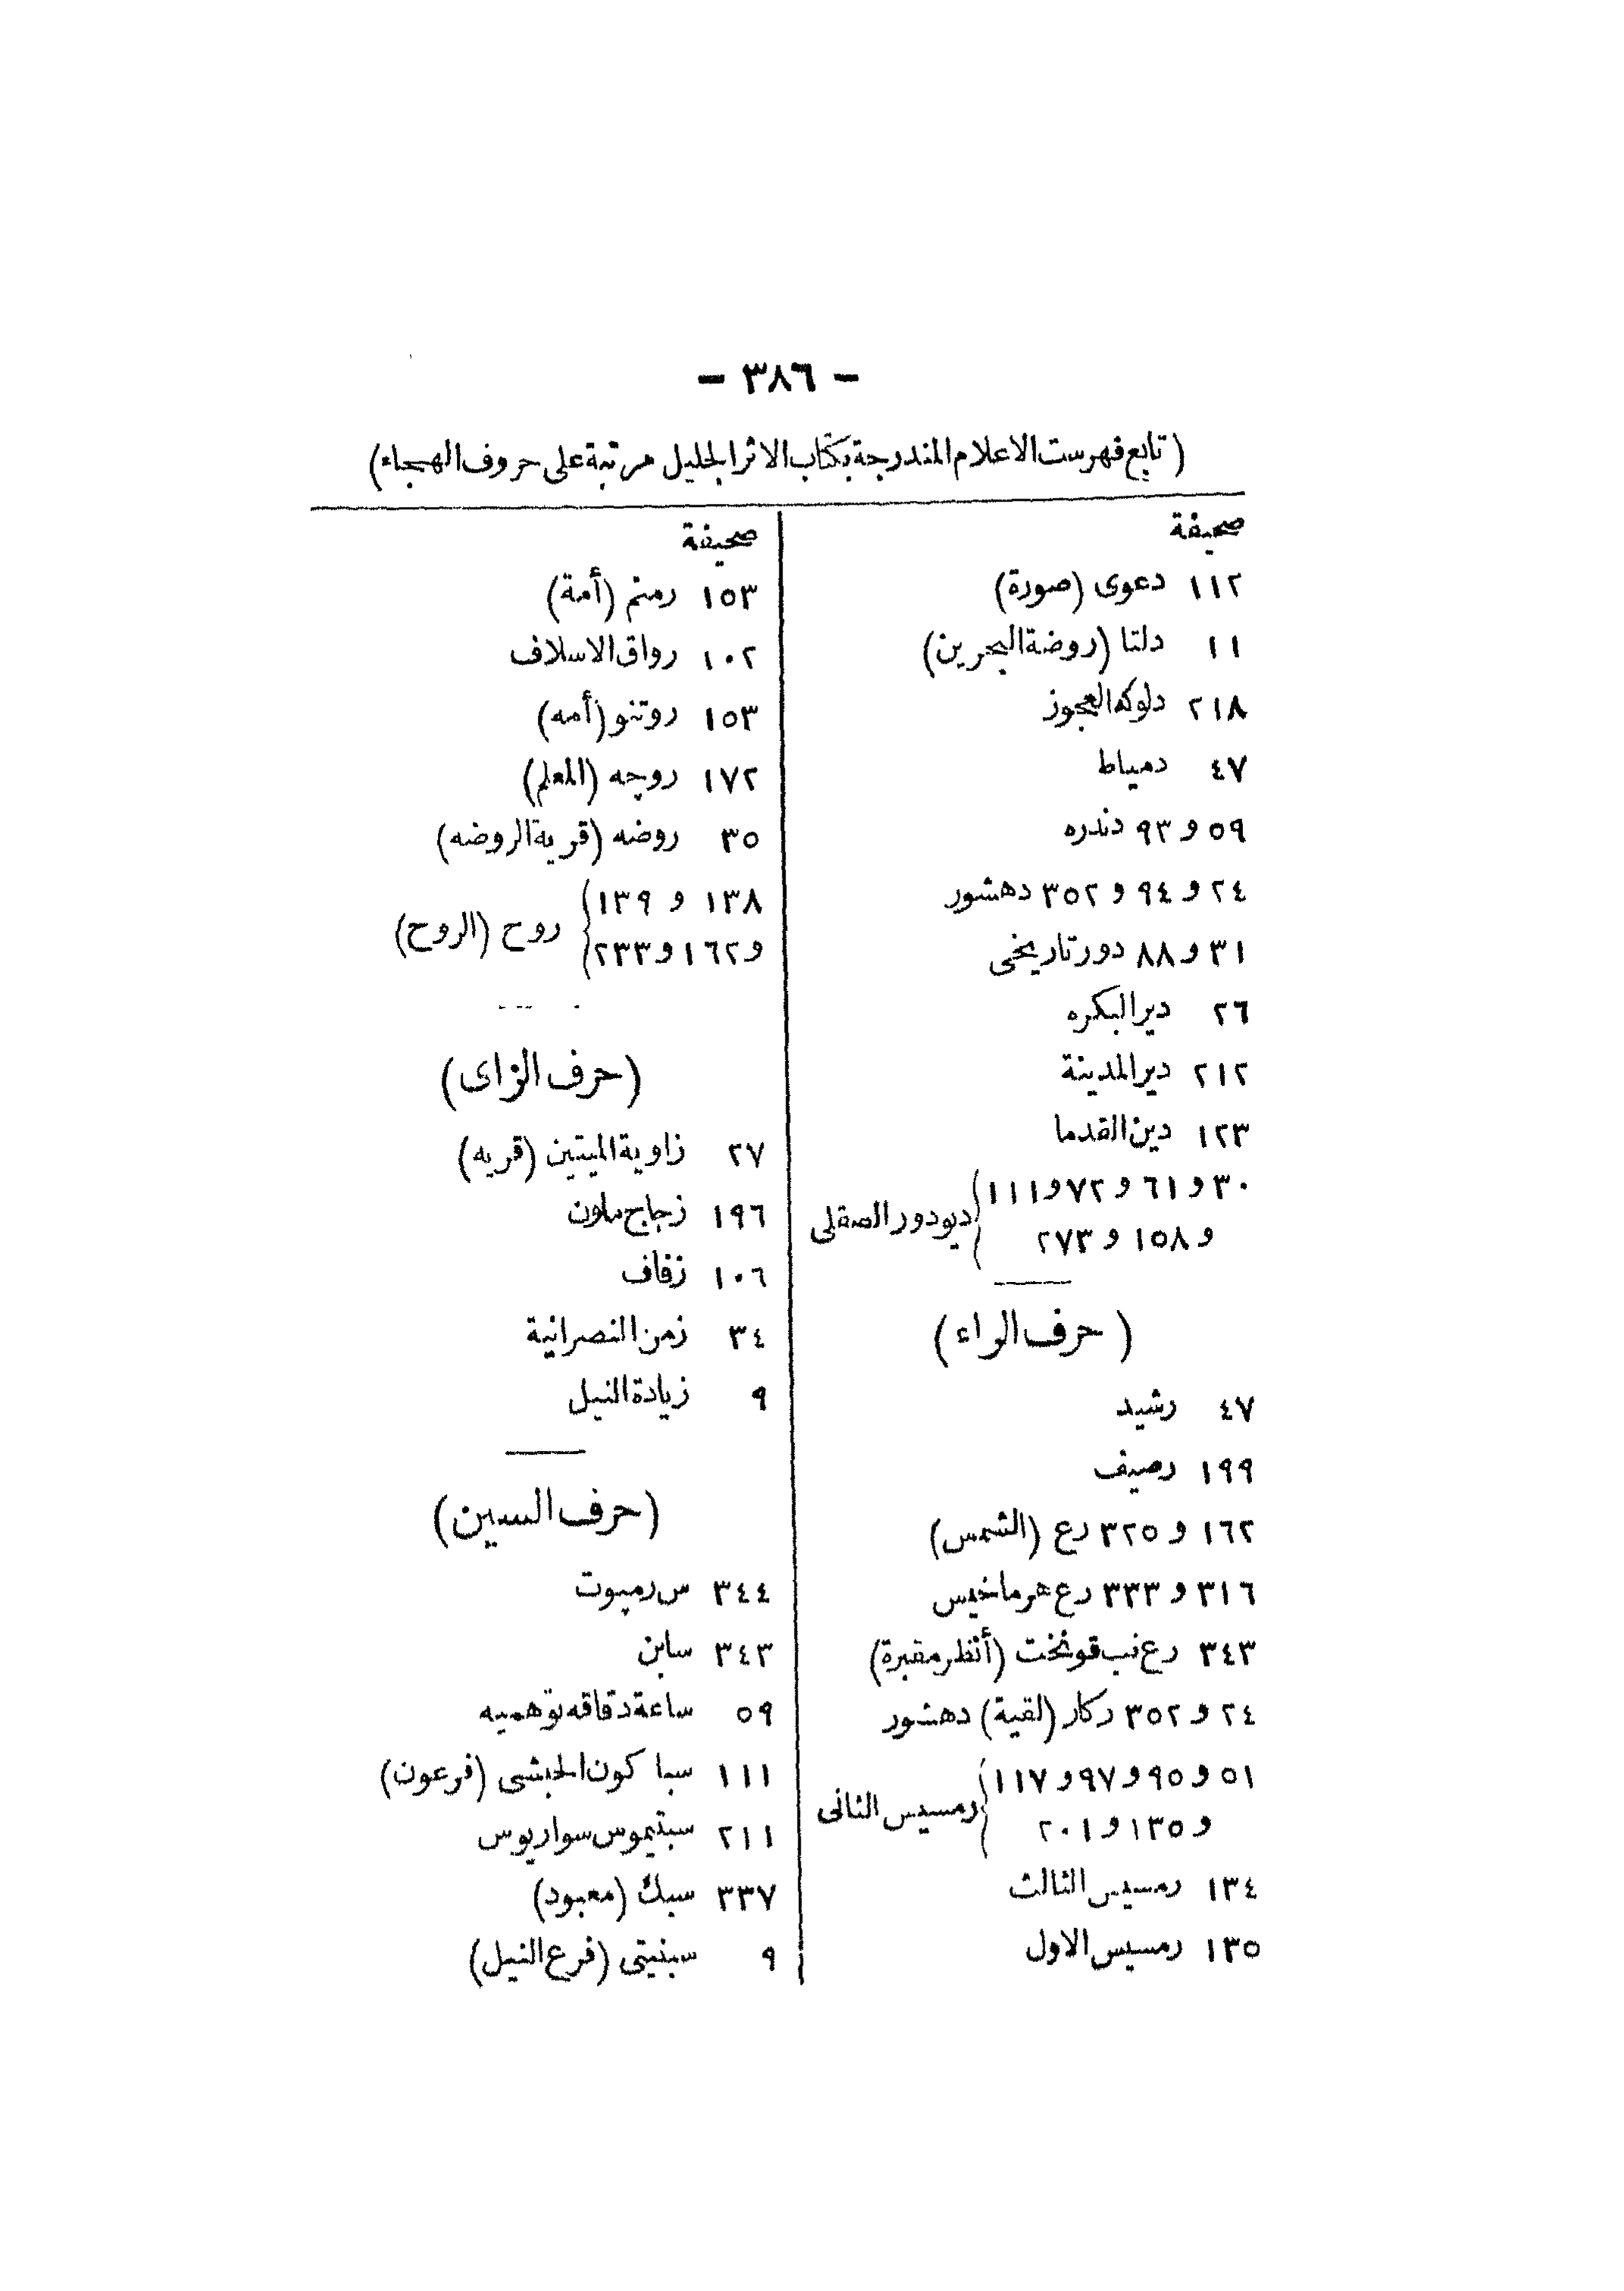 - ٣٨٦ -
(تابع فهرست الاعلام المندرجة بكتاب الاثر الجليل مرتبة على حروف الهجاء)
صحيفة
١١٢ دعوى (صورة)
١١ دلتا (روضة البحرين)
٢١٨ دلوكه العجوز
٤٧ دمياط
٥٩ و ٩٣ دندره
٢٤ و ٩٤ و ٣٥٢ دهشور
٣١ و ٨٨ دور تاريخى
٢٦ دير البكره
٢١٢ دير المدينة
١٢٣ دين القدما
٣٠ و ٦١ و ٧٢ و ١١١
و ١٥٨ و ٢٧٣ ديودور الصقلى
(حرف الراء)
٤٧ رشيد
١٩٩ رصيف
١٦٢ و ٣٢٥ رع (الشمس)
٣١٦ و ٣٣٣ رع هرماخيس
٣٤٣ رع نب قونخت (أنظر مقبرة)
٢٤ و ٣٥٢ ركار (لقية) دهشور
٥١ و ٩٥ و ٩٧ و ١١٧
و ١٣٥ و ٢٠١ رمسيس الثانى
١٣٤ رمسيس الثالث
١٣٥ رمسيس الاول
صحيفة
١٥٣ رمنم (أمة)
١٠٢ رواق الاسلاف
١٥٣ روتنو (أمه)
١٧٢ روچه (المعلم)
٣٥ روضه (قرية الروضه)
١٣٨ و ١٣٩
و ١٦٢ و ٢٣٣ روح (الروح)
(حرف الزاى)
٢٧ زاوية الميتين (قريه)
١٩٦ زجاج ملون
١٠٦ زفاف
٣٤ زمن النصرانية
٩ زيادة النيل
(حرف السين)
٣٤٤ س رمپوت
٣٤٣ سابن
٥٩ ساعة دقاقه توهميه
١١١ سبا كون الحبشى (فرعون)
٢١١ سبتيموس سواريوس
٣٣٧ سبك (معبود)
٩ سبنيتى (فرع النيل)